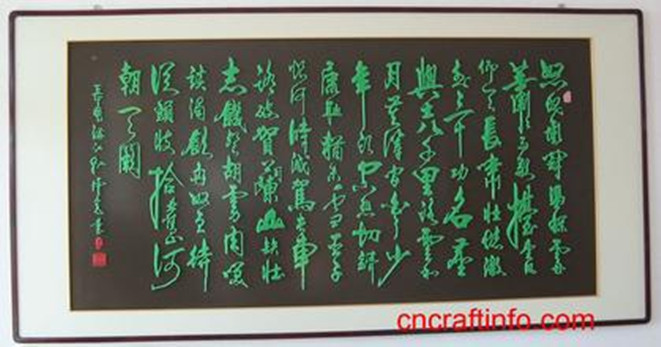 怒髮衝冠憑闌處
瀟瀟雨歇抬望眼
仰天長嘯壯懷激
烈三十功名塵
與土八千里路雲和
月莫等閒白了少
年頭空悲切靖
康恥猶未雪臣子
恨何時滅駕長車
踏破賀蘭山缺壯
志飢餐胡虜肉笑
談渴飲匈奴血待
從頭收拾舊山河
朝天闕
cncraftinfo.com